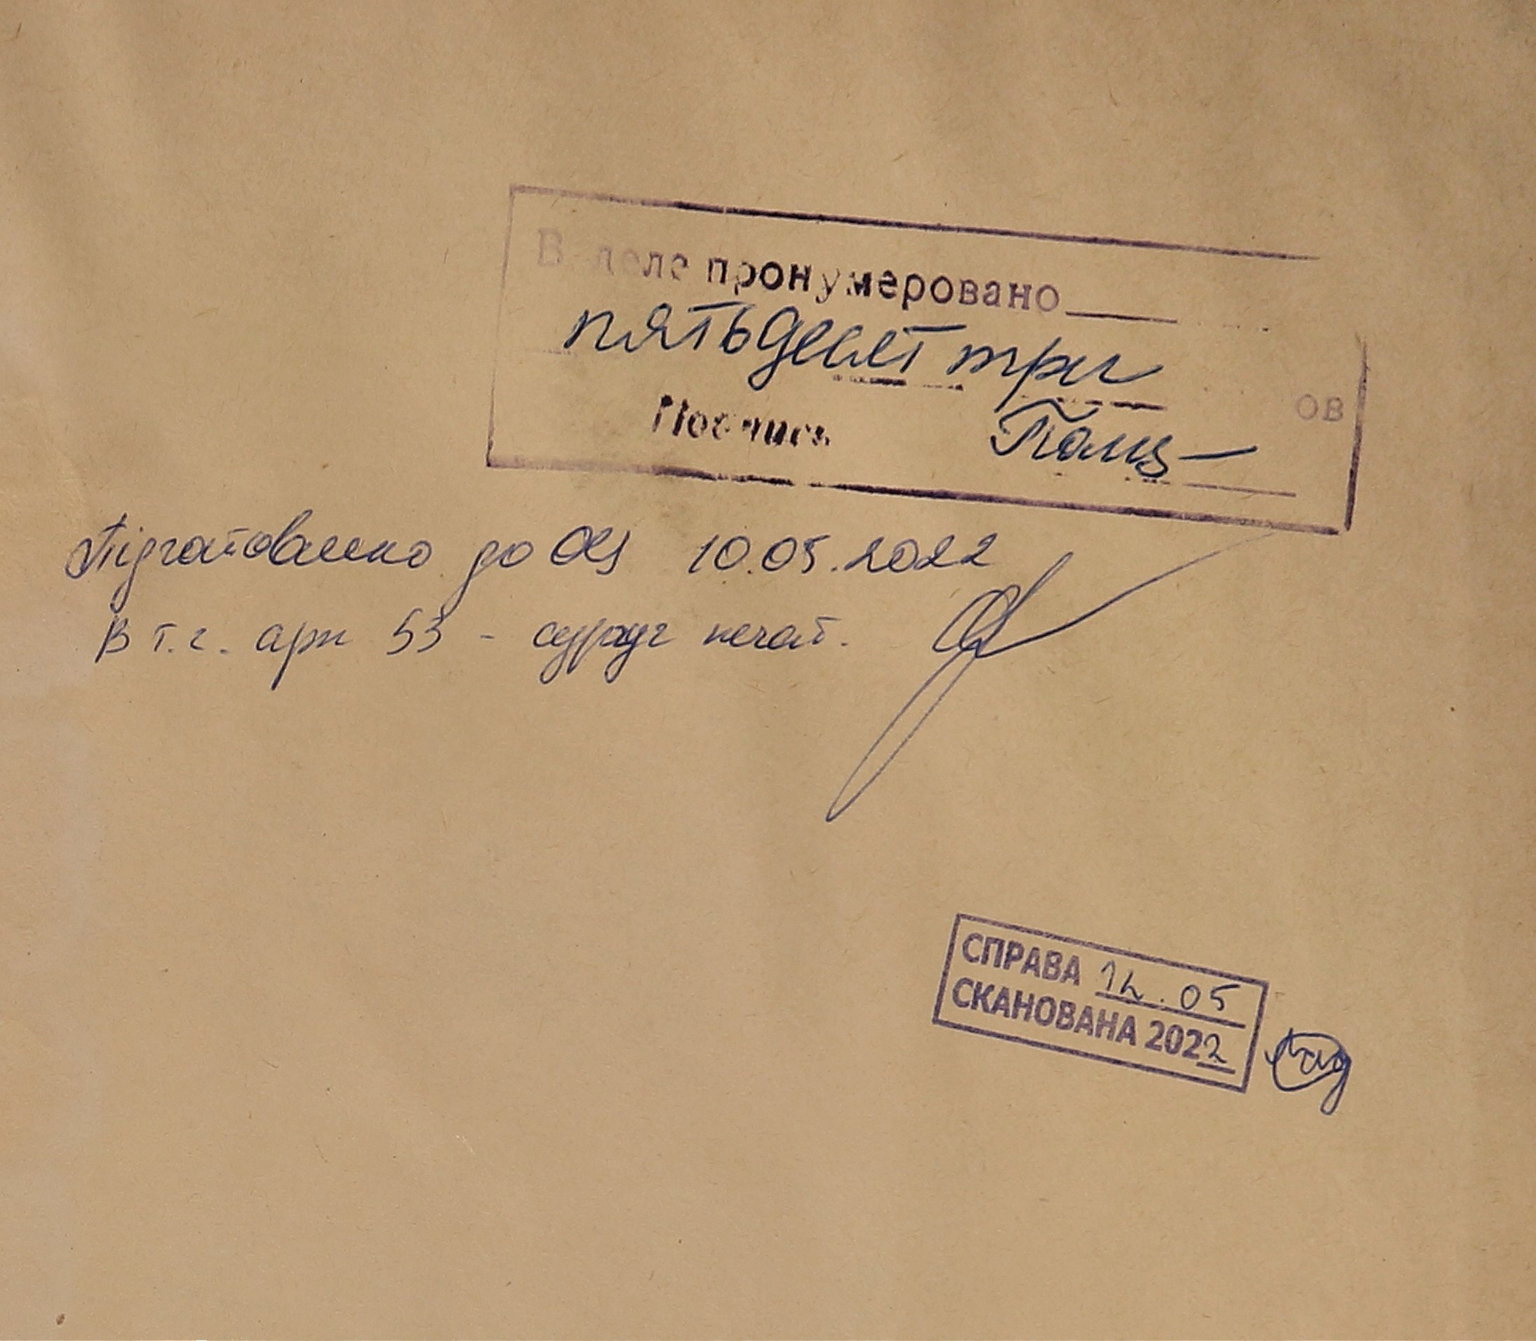 В деле пронумеровано
пятьдесят три
ов
Подпись
Підготовлено до ОЦ 10.05.2022
В т.ч. арк 53 - сургуч печат.
СПРАВА 12.05
СКАНОВАНА 2022